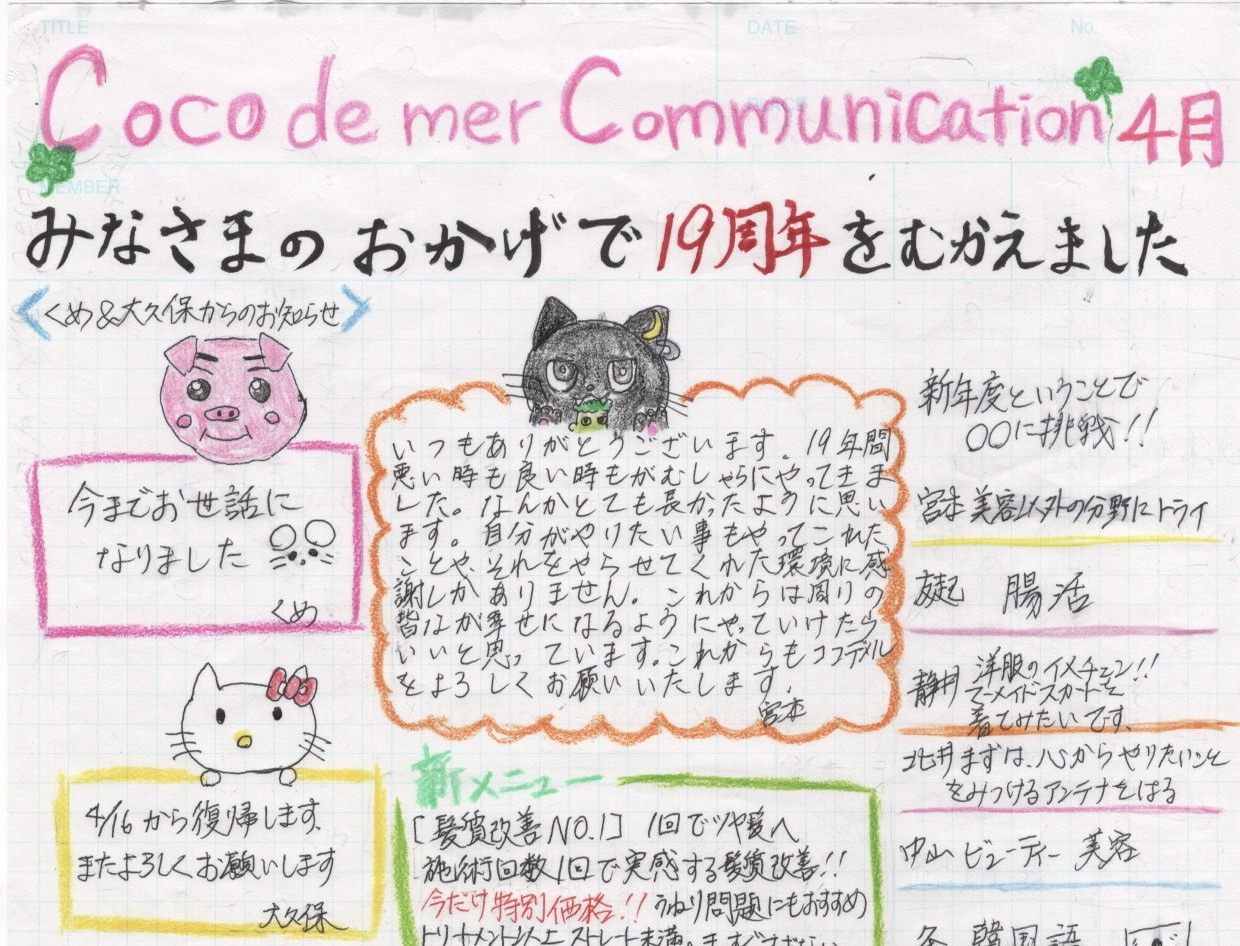 TITLE
DATE
No.
Coco de mer Communication 4月
MEMBER
みなさまのおかげで19周年をむかえました
くめ&大久保からのお知らせ
今までお世話に
なりました
くめ
4/16から復帰します
またよろしくお願いします
大久保
いつもありがとうございます。19年間
悪い時も良い時もがむしゃらにやってきま
した。なんかとても長かったように思い
ます。自分がやりたい事もやってこれた
ことや、それをやらせてくれた環境に感
謝しかありません。これからは周りの
皆なが幸せになるようにやっていけたら
いいと思っています。これからもココデメル
をよろしくお願いいたします。
宮本
新メニュー
[髪質改善NO.1] 1回でツヤ髪へ
施術回数1回で実感する髪質改善!!
今だけ特別価格!! うねり問題にもおすすめ
新年度ということで
〇〇に挑戦!!
宮本 美容以外の分野にトライ
腸活
静井 洋服のイメチェン!!
てーメイドスカートを
着てみたいです。
北井 まずは、心からやりたいこと
をみつけるアンテナをはる
中山 ビューティー 美容
韓国語